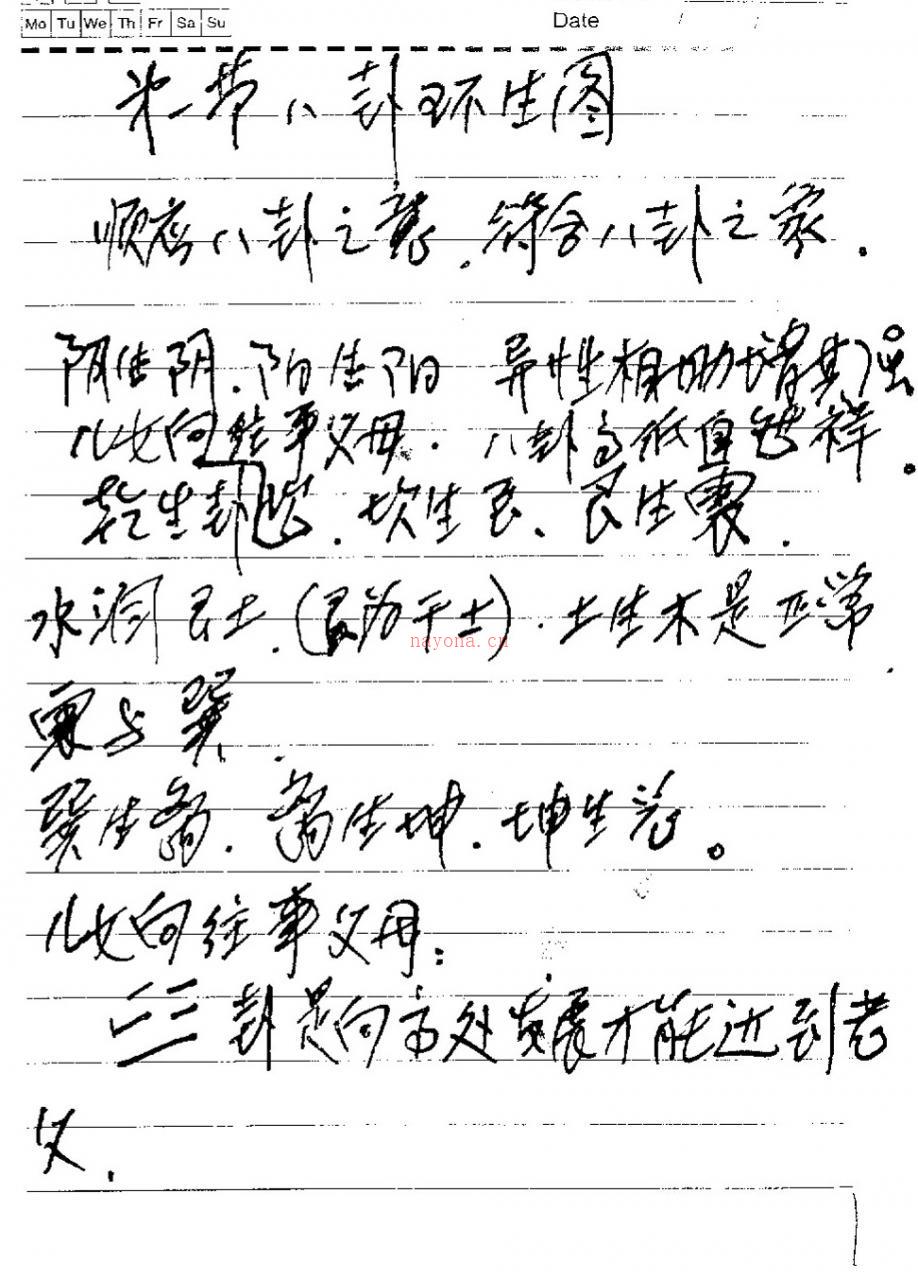 Mo Tu We Th Fr Sa Su Date
第一节八卦环生图
顺应八卦之意.符合八卦之象.
阴生阴.阳生阳 异性相助增其强
儿女向往事父母.八卦高低自 祥.
乾生 .坎生艮、艮生震.
水润艮土.(艮为干土).土生木是正常.
nayona.cn
震 巽.
巽生离.离生坤.坤生兑。
儿女向往事父母:
一二三卦是向高处发展才能达到老
父.